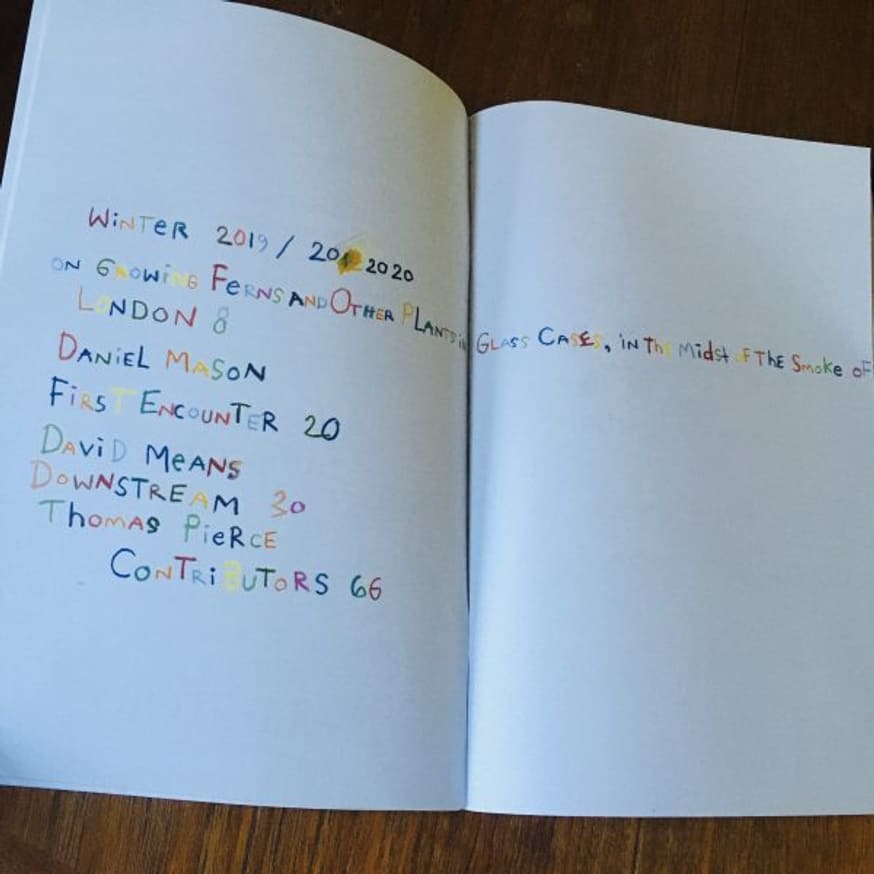 WiNTeR 2019 / 20 2020
ON GROWiNG FERNS AND OTHER PLANTS iN GLASS CASES, iN The Midst oF The Smoke oF
LONDON 8
DANiEL MASON
FiRST ENCOUNTER 20
DAViD MeANS
DOWNSTREAM 30
Thomas PieRCE
CONTRiBUTORS 66